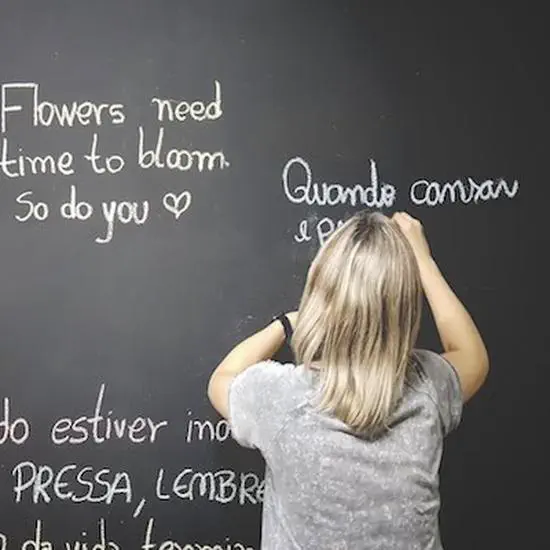 Flowers need
time to bloom.
So do you ♡
Quando cansar
e
estiver
PRESSA,
da vida